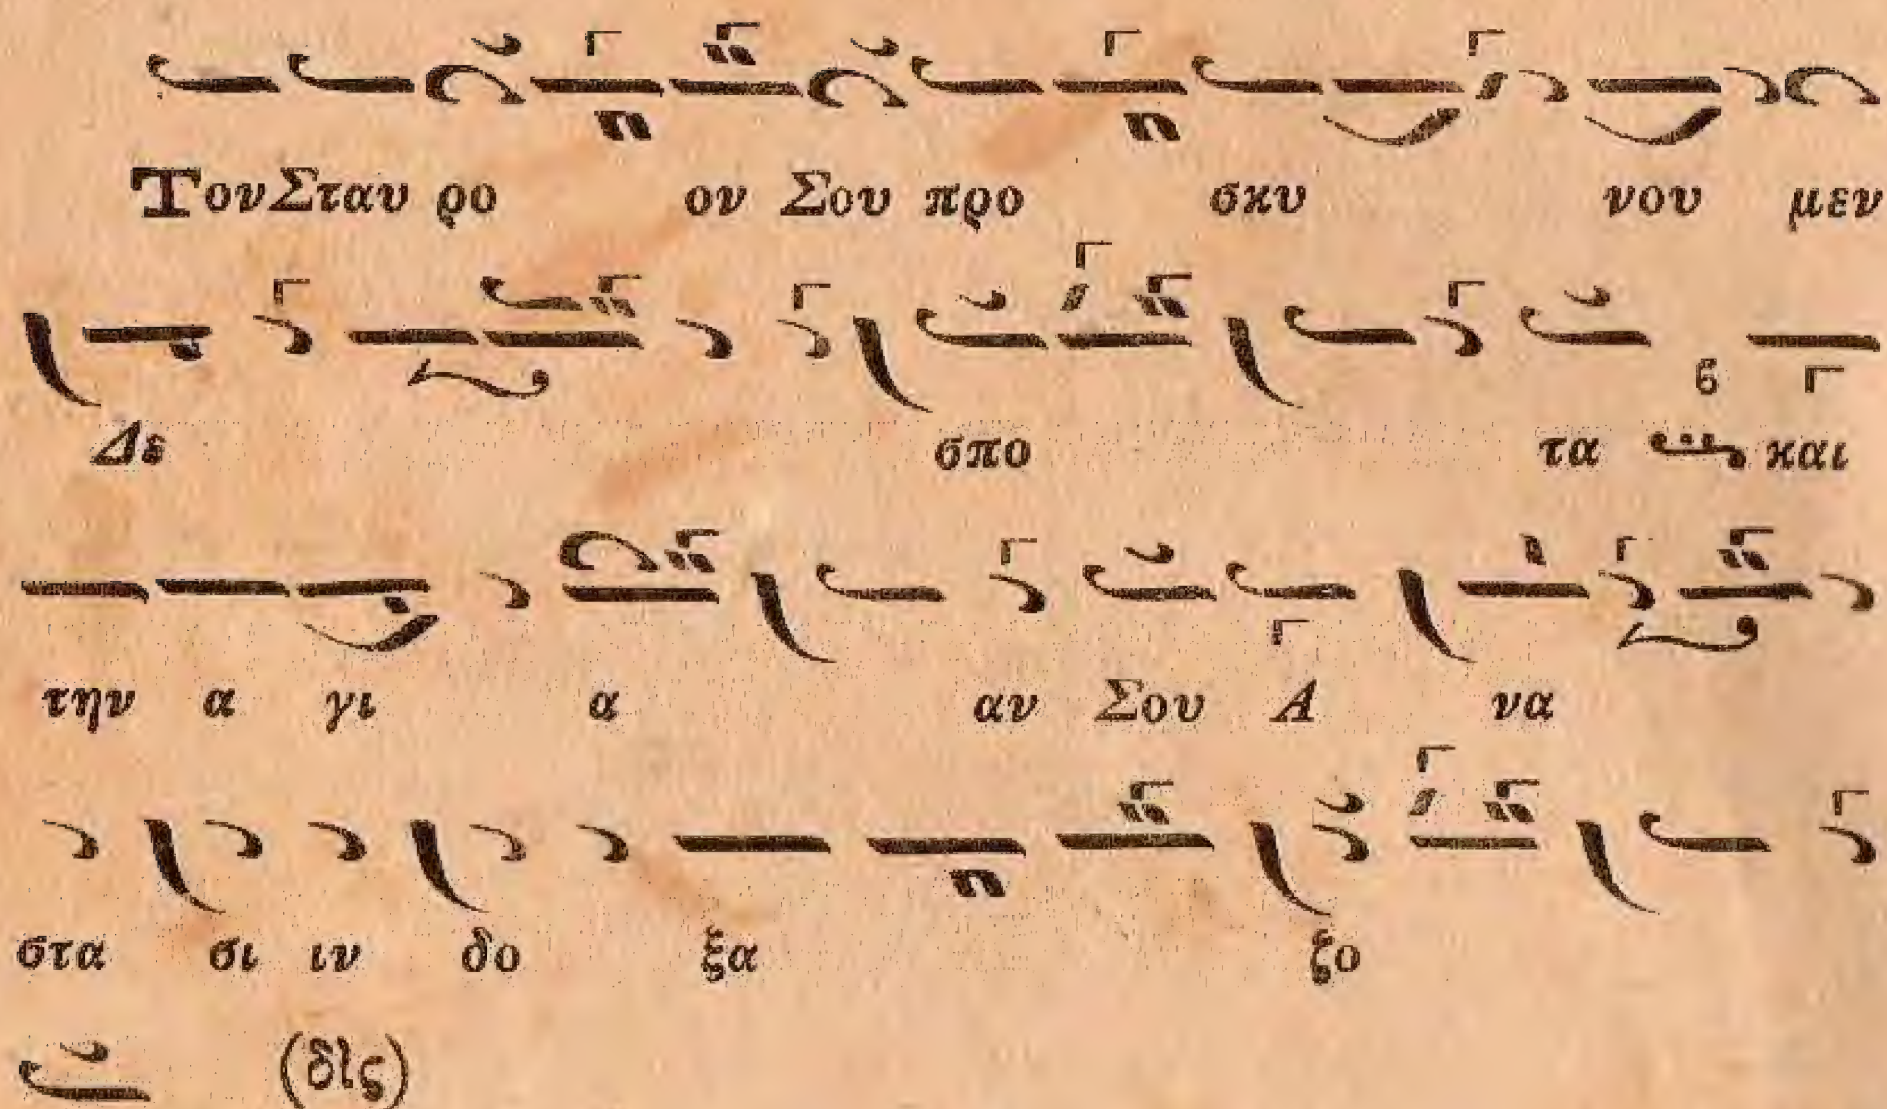 Τον Σταυ ρο ον Σου προ σκυ νου μεν
Δε σπο τα και
την α γι α αν Σου Α να
στα σι ιν δο ξα ζο
(δὶς)